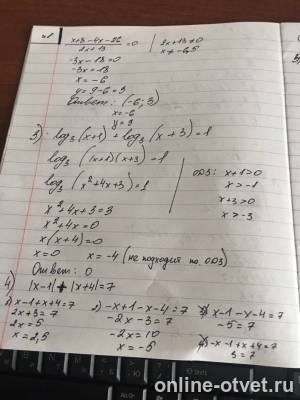 x+3-4x-26 / 2x+13 =0 | 2x+13≠0
x≠-6,5
-3x-13=0
-3x=13
x=-6
y=9-6=3
Ответ: (-6; 3)
x=-6
y=3
3) log₃(x+1)+log₃(x+3)=1
log₃(x+1)(x+3)=1
log₃(x²+4x+3)=1
ОДЗ: x+1>0
x>-1
x+3>0
x>-3
x²+4x+3=3
x²+4x=0
x(x+4)=0
x=0 x=-4 (не подходит по ОДЗ)
Ответ: 0
4) |x-1|+|x+4|=7
1) x-1+x+4=7
2x+3=7
2x=5
x=2,5
2) -x+1-x-4=7
-2x-3=7
-2x=10
x=-5
3) x-1-x-4=7
-5=7
4) -x-1+x+4=7
3=7
online-otvet.ru